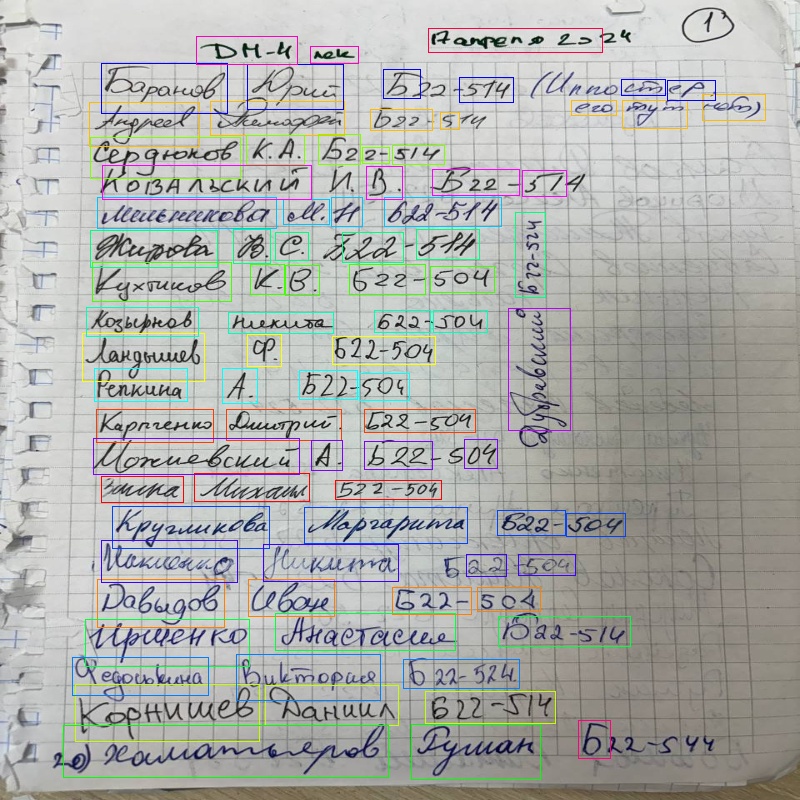 1
ДМ-4 лек 17 апреля 2024
Баранов Юрий Б22-514 (Иппостер,
его тут нет)
Андреев Тимофей Б22-514
Сердюков К.А. Б22-514
Ковальский И.В. Б22-514
Мельникова М.Н Б22-514
Жирова В.С. Б22-514
Кухтиков К.В. Б22-504
Козырнов Никита Б22-504
Ландышев Ф. Б22-504
Репкина А. Б22-504
Карпченко Дмитрий. Б22-504
Можиевский А. Б22-504
Дубравский Б22-524
Михаил Б22-504
Кругликова Маргарита Б22-504
Никита Б22-504
Давыдов Иван Б22-504
Ириенко Анастасия Б22-514
Федоськина Виктория Б22-524
Корнишев Даниил Б22-514
20) Хаматьяров Руман Б22-544